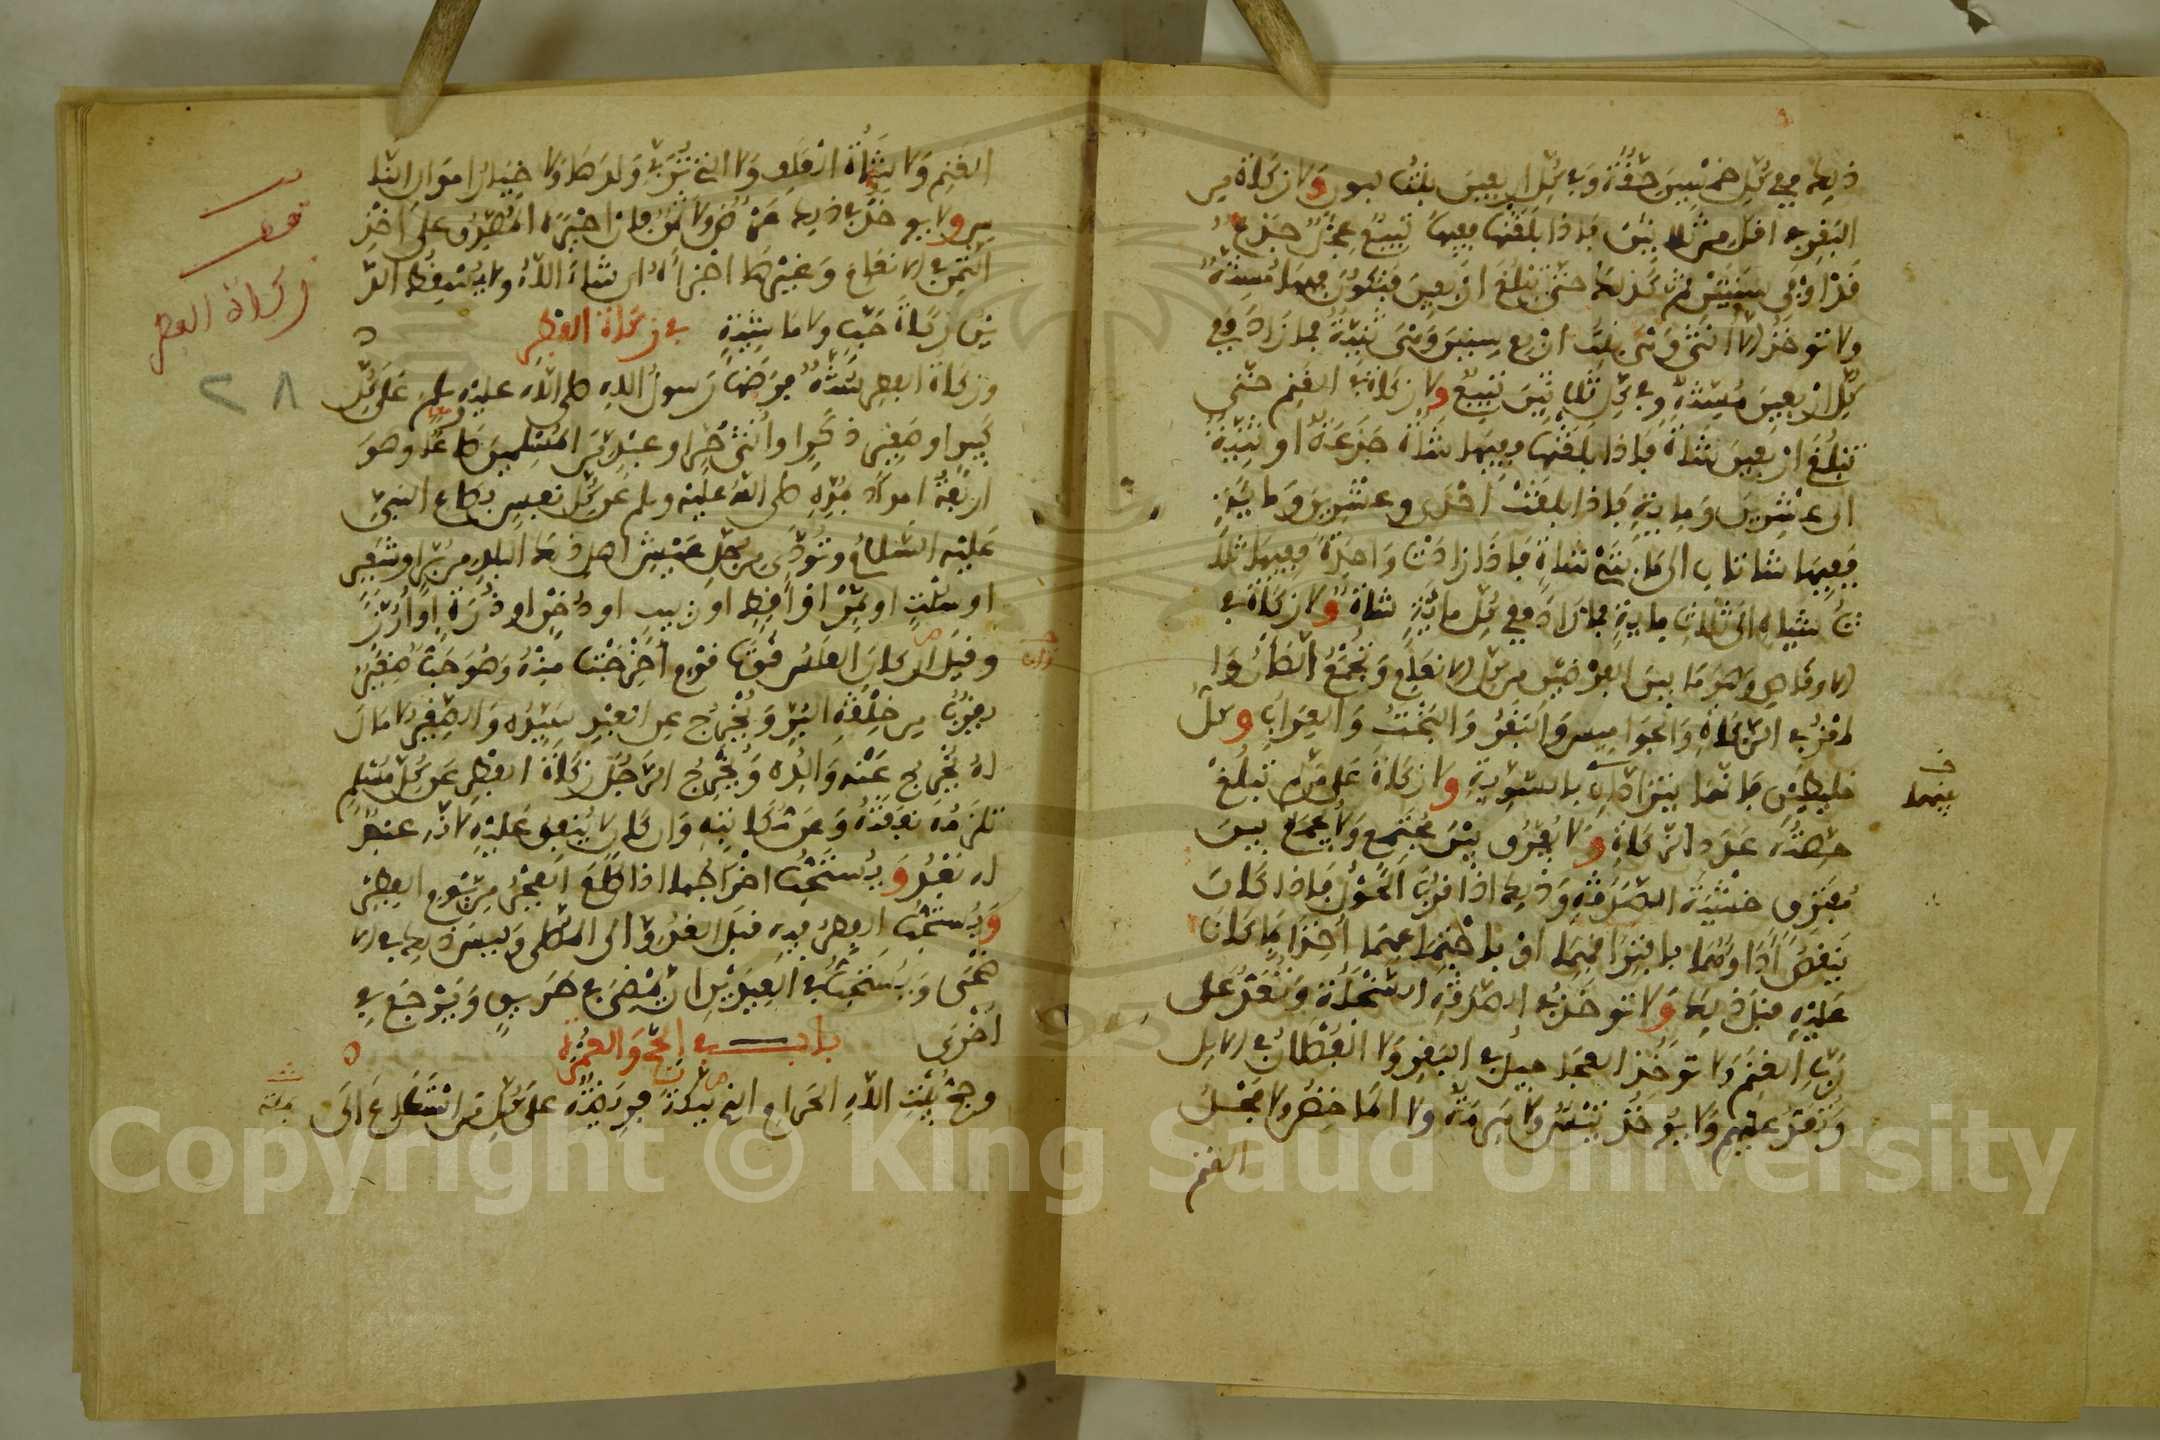 ذلك ففي كل خمسين حقة وفي كل اربعين بنت لبون ولا زكاة من
البقر في اقل من ثلاثين فاذا بلغتها ففيها تبيع عجل جذع
قد اوفى سنتين ثم كذلك حتى تبلغ اربعين فتكون فيها مسنة
ولا تؤخذ الا انثى وهي بنت اربع سنين وهي ثنية فما زاد ففي
كل اربعين مسنة وفي كل ثلاثين تبيع ولا زكاة في الغنم حتى
تبلغ اربعين شاة فاذا بلغتها ففيها شاة جذعة او ثنية
الى عشرين وماية فاذا بلغت احدى وعشرين وماية
ففيها شاتان الى مايتي شاة فاذا زادت واحدة ففيها ثلا
ث شياه الى ثلاث ماية فما زاد ففي كل ماية شاة ولا زكاة في
الاوقاص وهي ما بين الفرضين من كل الانعام ويجمع الضان وا
لمعز في الزكاة والجواميس والبقر والبخت والعراب وكل
خليطين فانهما يترادان بالسوية ولا زكاة على من لم تبلغ
حصته عدد الزكاة ولا يفرق بين مجتمع ولا يجمع بين
مفترق خشية الصدقة وذلك اذا قرب الحول فاذا كان
ينقص اداؤهما بافتراقهما او باجتماعهما اخذا بما كانا
عليه قبل ذلك ولا تؤخذ في الصدقة السخلة وتعد على
رب الغنم ولا تؤخذ العجاجيل في البقر ولا الفصلان في الابل
وتعد عليهم ولا يؤخذ تيس ولا هرمة ولا الماخض ولا فحل
الغنم
بينهما
الغنم ولا شاة العلف ولا التي تربي ولدها ولا خيار اموال النا
س ولا يوخذ في ذلك عرض ولا ثمن فان اجبره المصدق على اخذ
الثمن في الانعام وغيرها اجزاه ان شاء الله ولا يسقط الد
ين زكاة حب ولا ماشية في زكاة الفطر
وزكاة الفطر سنة فرضها رسول الله صلى الله عليه وسلم على كل
كبير او صغير ذكرا وانثى حر او عبد من المسلمين صاعا وهو
اربعة امداد بمده صلى الله عليه وسلم عن كل نفس بصاع النبي
عليه السلام وتؤدى من جل عيش اهل ذلك البلد من بر او شعير
او سلت او تمر او اقط او زبيب او دخن او ذرة او ارز
وقيل ان كان العلس قوت قوم اخرجت منه وهو حب صغير
يقرب من خلقة البر ويخرج عن العبد سيده والصغير لا مال
له يخرج عنه والده ويخرج الرجل زكاة الفطر عن كل مسلم
تلزمه نفقته وعن مكاتبه وان كان لا ينفق عليه لانه عبد
له بعد ويستحب اخراجها اذا طلع الفجر من يوم الفطر
ويستحب الفطر فيه قبل الغدو الى المصلى وليس ذلك في الا
ضحى ويستحب في العيدين ان يمضي في طريق ويرجع في
اخرى باب في الحج والعمرة
وحج بيت الله الحرام الذي ببكة فريضة على كل من استطاع الى
زكاة الفطر
٢٨